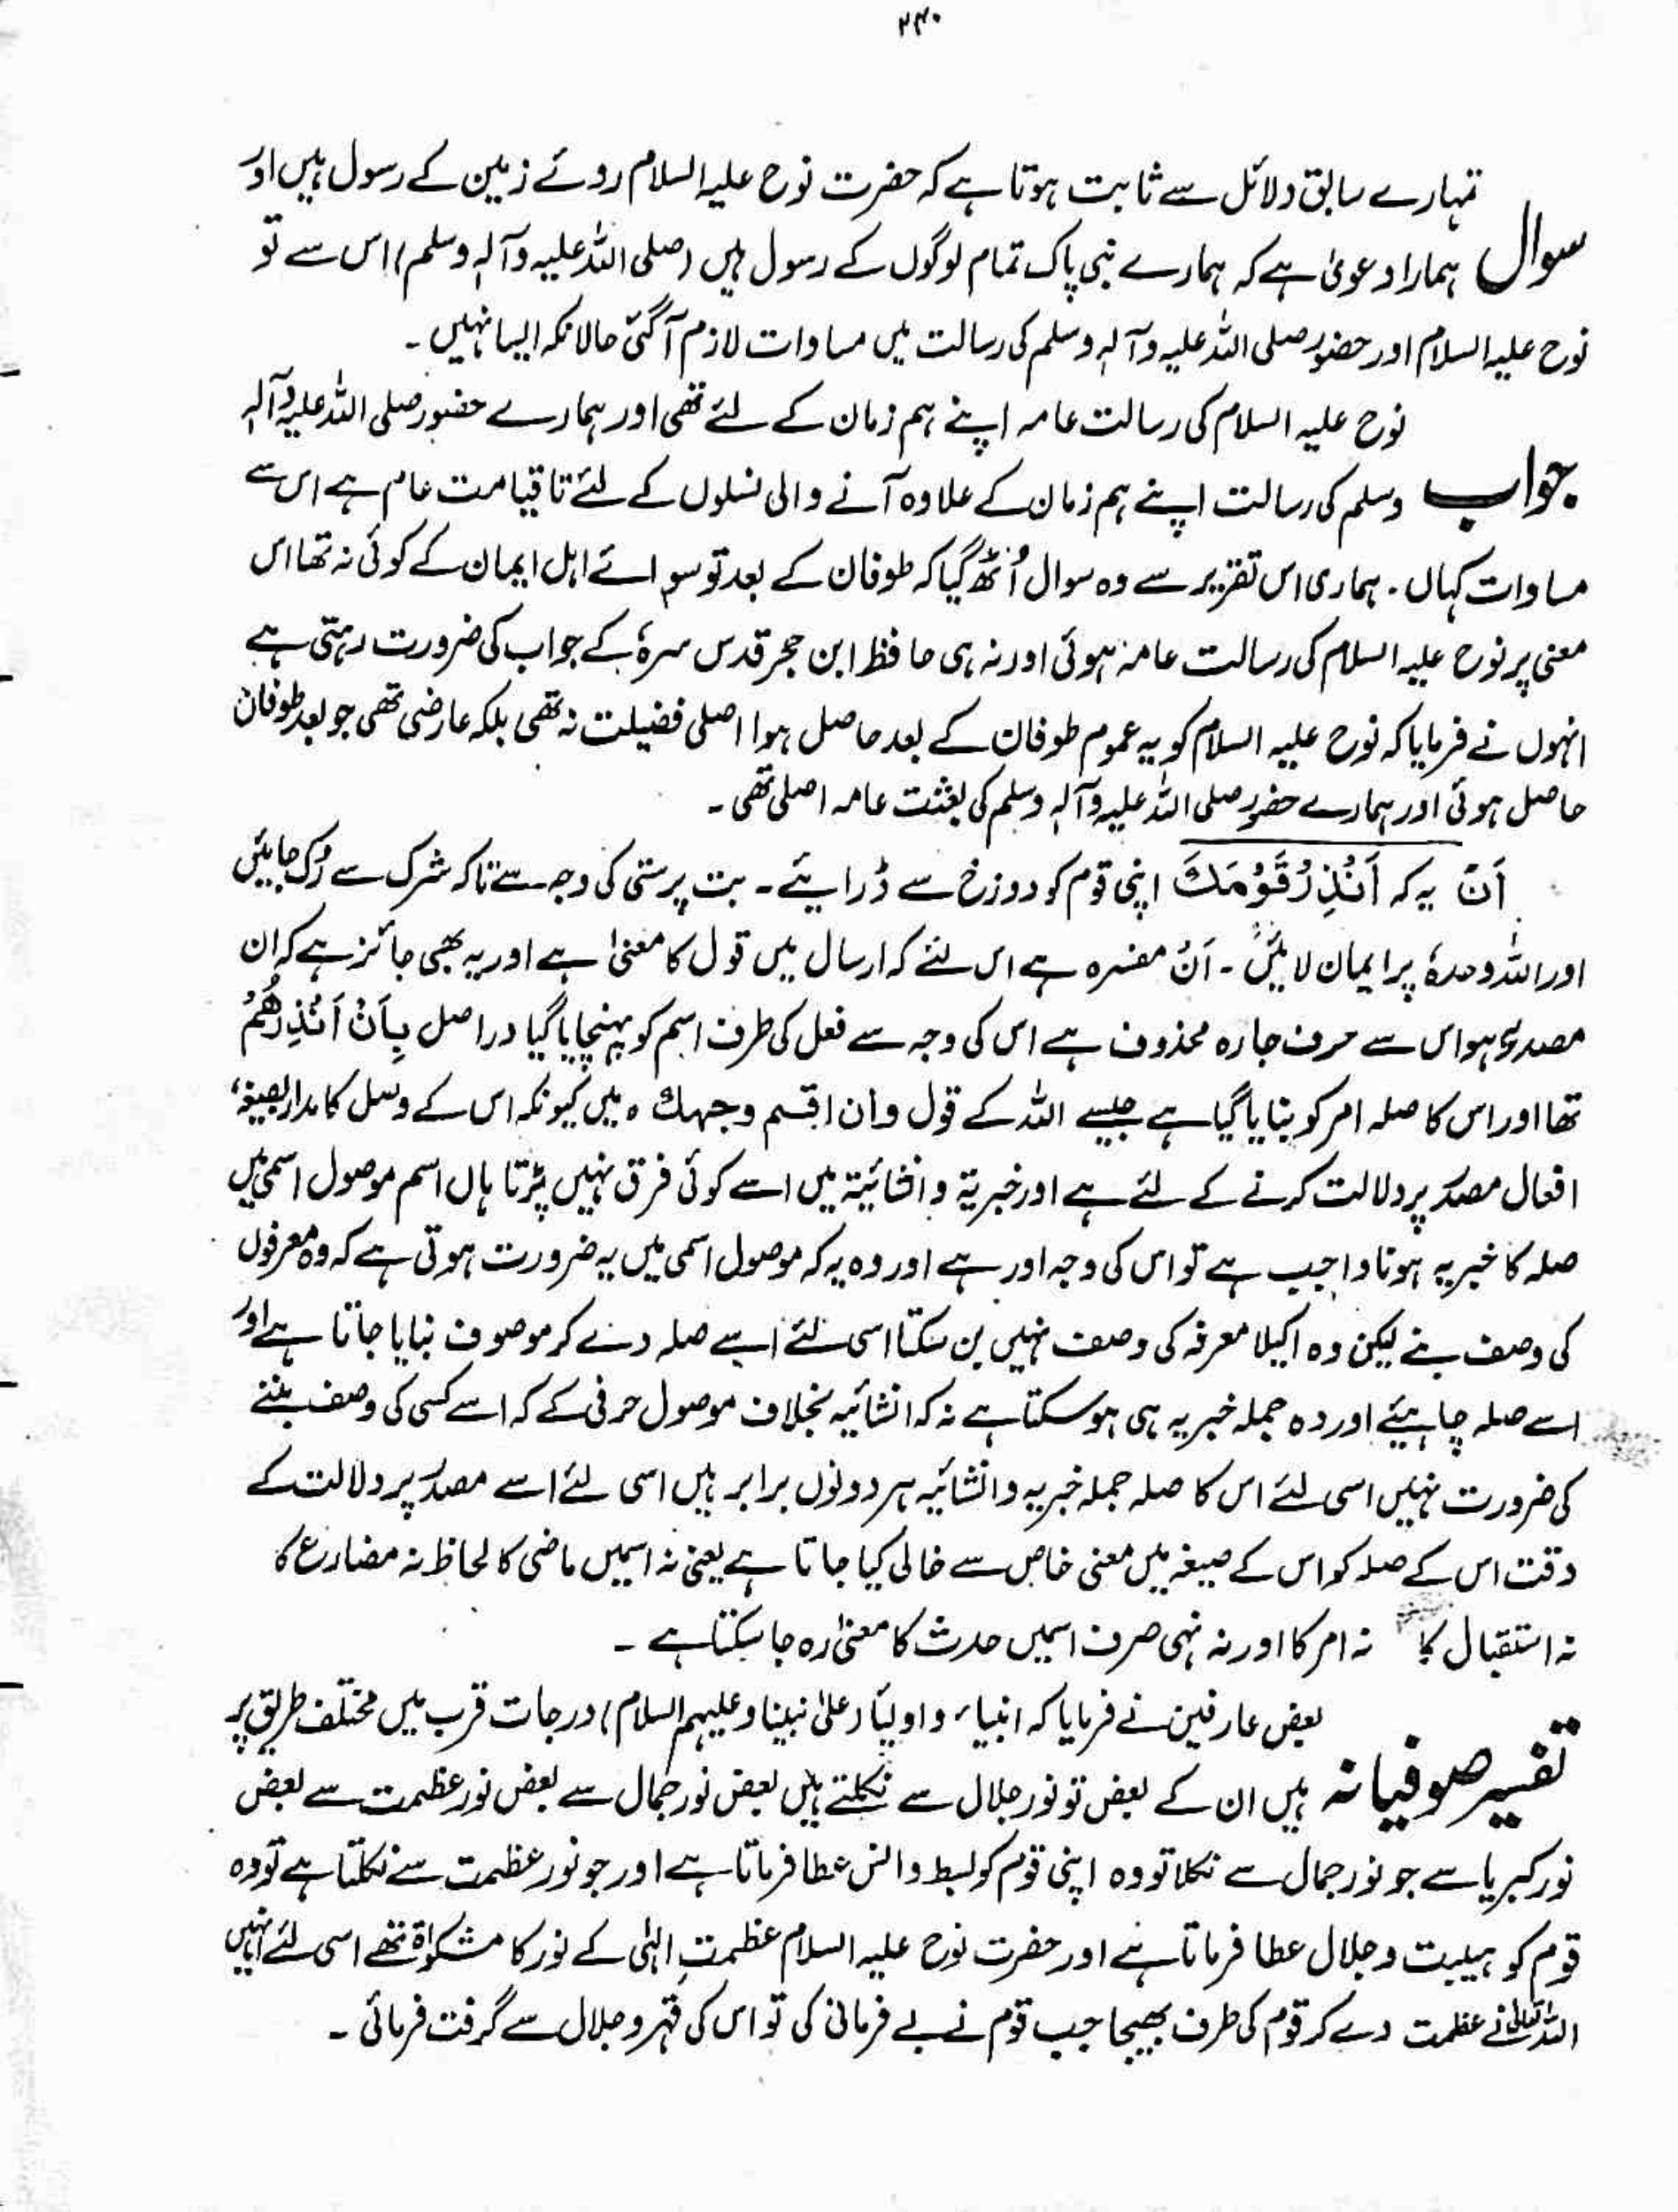 ۲۴۰
تمہارے سابق دلائل سے ثابت ہوتا ہے کہ حضرت نوح علیہ السلام روئے زمین کے رسول ہیں اور
سوال ہمارا دعویٰ ہے کہ ہمارے نبی پاک تمام لوگوں کے رسول ہیں (صلی اللہ علیہ وآلہ وسلم) اس سے تو
نوح علیہ السلام اور حضور صلی اللہ علیہ وآلہ وسلم کی رسالت میں مساوات لازم آگئی حالانکہ ایسا نہیں ۔
نوح علیہ السلام کی رسالت عامہ اپنے ہم زمان کے لئے تھی اور ہمارے حضور صلی اللہ علیہ وآلہ
جواب وسلم کی رسالت اپنے ہم زمان کے علاوہ آنے والی نسلوں کے لئے تا قیامت عام ہے اس سے
مساوات کہاں ۔ ہماری اس تقریر سے وہ سوال اُٹھ گیا کہ طوفان کے بعد تو سوائے اہل ایمان کے کوئی نہ تھا اس
معنی پر نوح علیہ السلام کی رسالت عامہ ہوئی اور نہ ہی حافظ ابن حجر قدس سرہٗ کے جواب کی ضرورت رہتی ہے
انہوں نے فرمایا کہ نوح علیہ السلام کو یہ عموم طوفان کے بعد حاصل ہوا اصلی فضیلت نہ تھی بلکہ عارضی تھی جو بعد طوفان
حاصل ہوئی اور ہمارے حضور صلی اللہ علیہ وآلہ وسلم کی بعثت عامہ اصلی تھی ۔
اَنْ یہ کہ اَنْذِرْ قَوْمَكَ اپنی قوم کو دوزخ سے ڈرایئے ۔ بت پرستی کی وجہ سے تاکہ شرک سے رُک جائیں
اور اللہ وحدہٗ پر ایمان لائیں ۔ اَنْ مفسرہ ہے اس لئے کہ ارسال میں قول کا معنیٰ ہے اور یہ بھی جائز ہے کہ ان
مصدریہ ہو اس سے حرف جارہ محذوف ہے اس کی وجہ سے فعل کی طرف اسم کو پہنچایا گیا دراصل بِاَنْ اَنْذِرْهُمْ
تھا اور اس کا صلہ امر کو بنایا گیا ہے جیسے اللہ کے قول وان اقسم وجهك ہ میں کیونکہ اس کے وصل کا مدار بصیغہٗ
افعال مصدر پر دلالت کرنے کے لئے ہے اور خبریۃ و انشائیۃ میں اسے کوئی فرق نہیں پڑتا ہاں اسم موصول اسمی میں
صلہ کا خبریہ ہونا واجب ہے تو اس کی وجہ اور ہے اور وہ یہ کہ موصول اسمی میں یہ ضرورت ہوتی ہے کہ وہ معرفوں
کی وصف بنے لیکن وہ اکیلا معرفہ کی وصف نہیں بن سکتا اسی لئے اسے صلہ دے کر موصوف بنایا جاتا ہے اور
اسے صلہ چاہیئے اور وہ جملہ خبریہ ہی ہو سکتا ہے نہ کہ انشائیہ بخلاف موصول حرفی کے کہ اسے کسی کی وصف بننے
کی ضرورت نہیں اسی لئے اس کا صلہ جملہ خبریہ و انشائیہ ہر دونوں برابر ہیں اسی لئے اسے مصدر پر دلالت کے
وقت اس کے صلہ کو اس کے صیغہ میں معنی خاص سے خالی کیا جاتا ہے یعنی نہ اسمیں ماضی کا لحاظ نہ مضارع کا
نہ استقبال کا نہ امر کا اور نہ نہی صرف اسمیں حدث کا معنیٰ رہ جا سکتا ہے ۔
بعض عارفین نے فرمایا کہ انبیاء و اولیاء (علیٰ نبینا وعلیہم السلام) درجات قرب میں مختلف طریق پر
تفسیر صوفیانہ ہیں ان کے بعض تو نور جلال سے نکلتے ہیں بعض نور جمال سے بعض نور عظمت سے بعض
نور کبریا سے جو نور جمال سے نکلا تو وہ اپنی قوم کو بسط و انس عطا فرماتا ہے اور جو نور عظمت سے نکلتا ہے تو وہ
قوم کو ہیبت و جلال عطا فرماتا ہے اور حضرت نوح علیہ السلام عظمتِ الہٰی کے نور کا مشکوٰۃ تھے اسی لئے انہیں
اللہ تعالیٰ نے عظمت دے کر قوم کی طرف بھیجا جب قوم نے بے فرمانی کی تو اس کی قہر و جلال سے گرفت فرمائی ۔